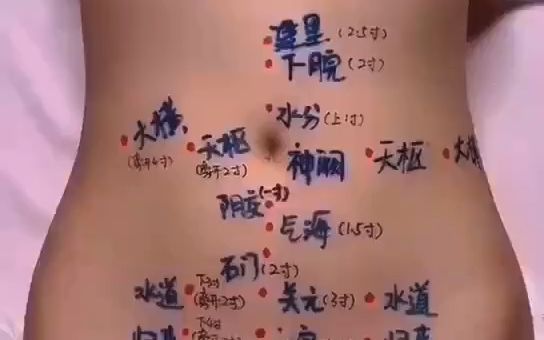 建里(2.5寸)
下脘(2寸)
水分(上1寸)
大横 天枢 神阙 天枢 大横
(离开4寸) (离开2寸)
阴交(一寸)
气海(1.5寸)
石门(2寸)
水道 下3寸(离开2寸) 关元(3寸) 水道
归来 下4寸 归来